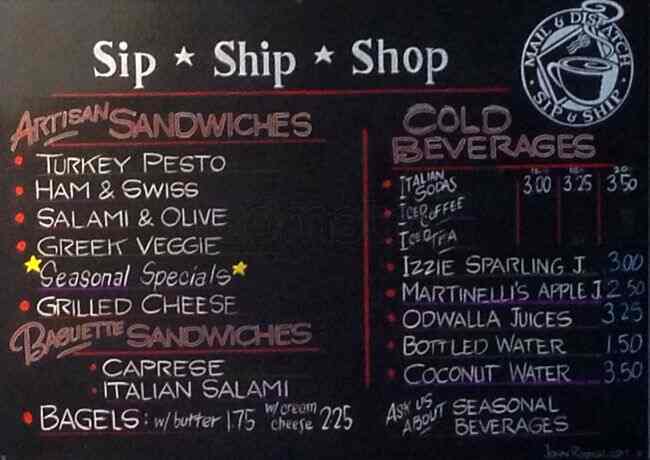 Sip ★ Ship ★ Shop
MAIL & DISPATCH
SIP & SHIP
ARTISAN SANDWICHES
• TURKEY PESTO
• HAM & SWISS
• SALAMI & OLIVE
• GREEK VEGGIE
★Seasonal Specials★
• GRILLED CHEESE
BAGUETTE SANDWICHES
• CAPRESE
• ITALIAN SALAMI
• BAGELS: w/ butter 1.75 w/ cream cheese 2.25
COLD
BEVERAGES
• ITALIAN SODAS 3.00 3.25 3.50
• ICED COFFEE
• ICED TEA
• IZZIE SPARLING J. 3.00
• MARTINELLI'S APPLE J. 2.50
• ODWALLA JUICES 3.25
• BOTTLED WATER 1.50
• COCONUT WATER 3.50
ASK US ABOUT SEASONAL
BEVERAGES